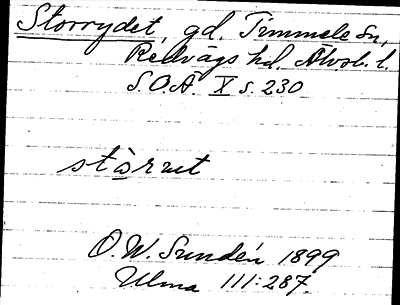 Storrydet, gd. Timmele sn,
Redvägs hd. Älvsb. l.
S.O.Ä. X s. 230
stàrut
O. W. Sundén 1899
Ulma 111:287.